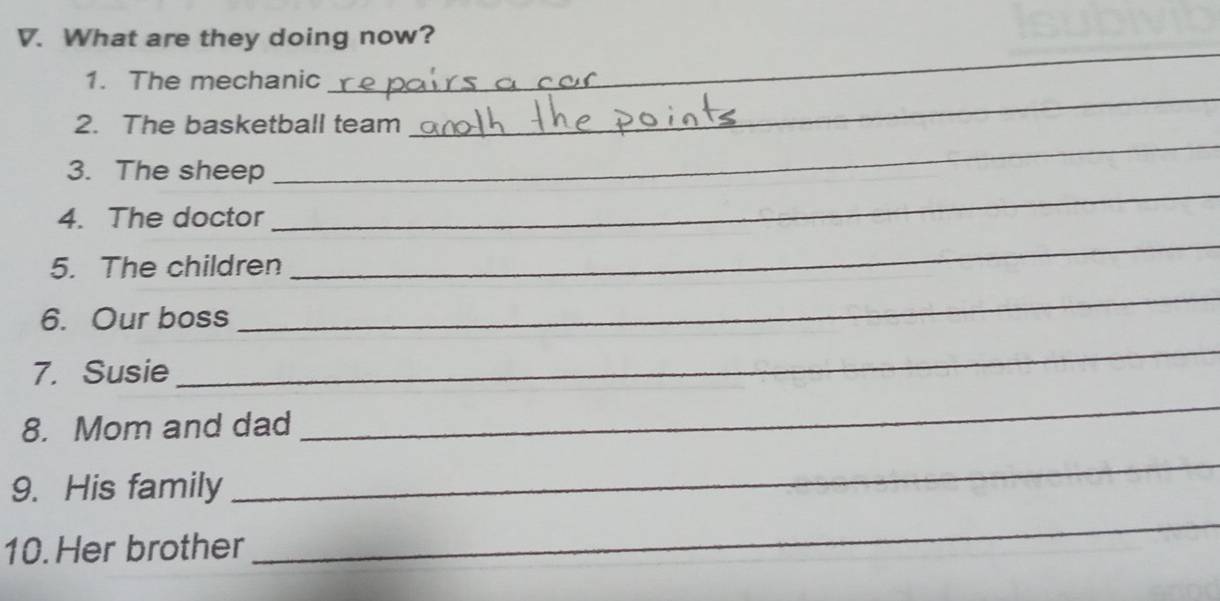 V. What are they doing now?
1. The mechanic repairs a car
2. The basketball team anoth the points
3. The sheep
4. The doctor
5. The children
6. Our boss
7. Susie
8. Mom and dad
9. His family
10. Her brother